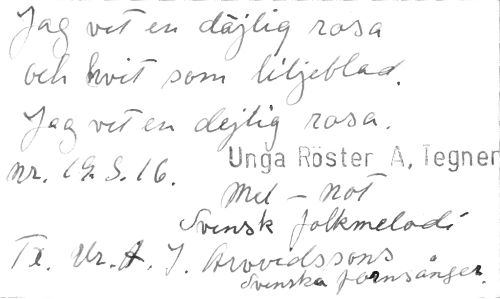 Jag vet en däjlig rosa
och hvit som liljeblad.
Jag vet en dejlig rosa.
nr. 19. S. 16. Unga Röster A. Tegner
Mel - not
Svensk folkmelodi
Tx. Ur. A. I. Arwidssons
Svenska fornsånger.